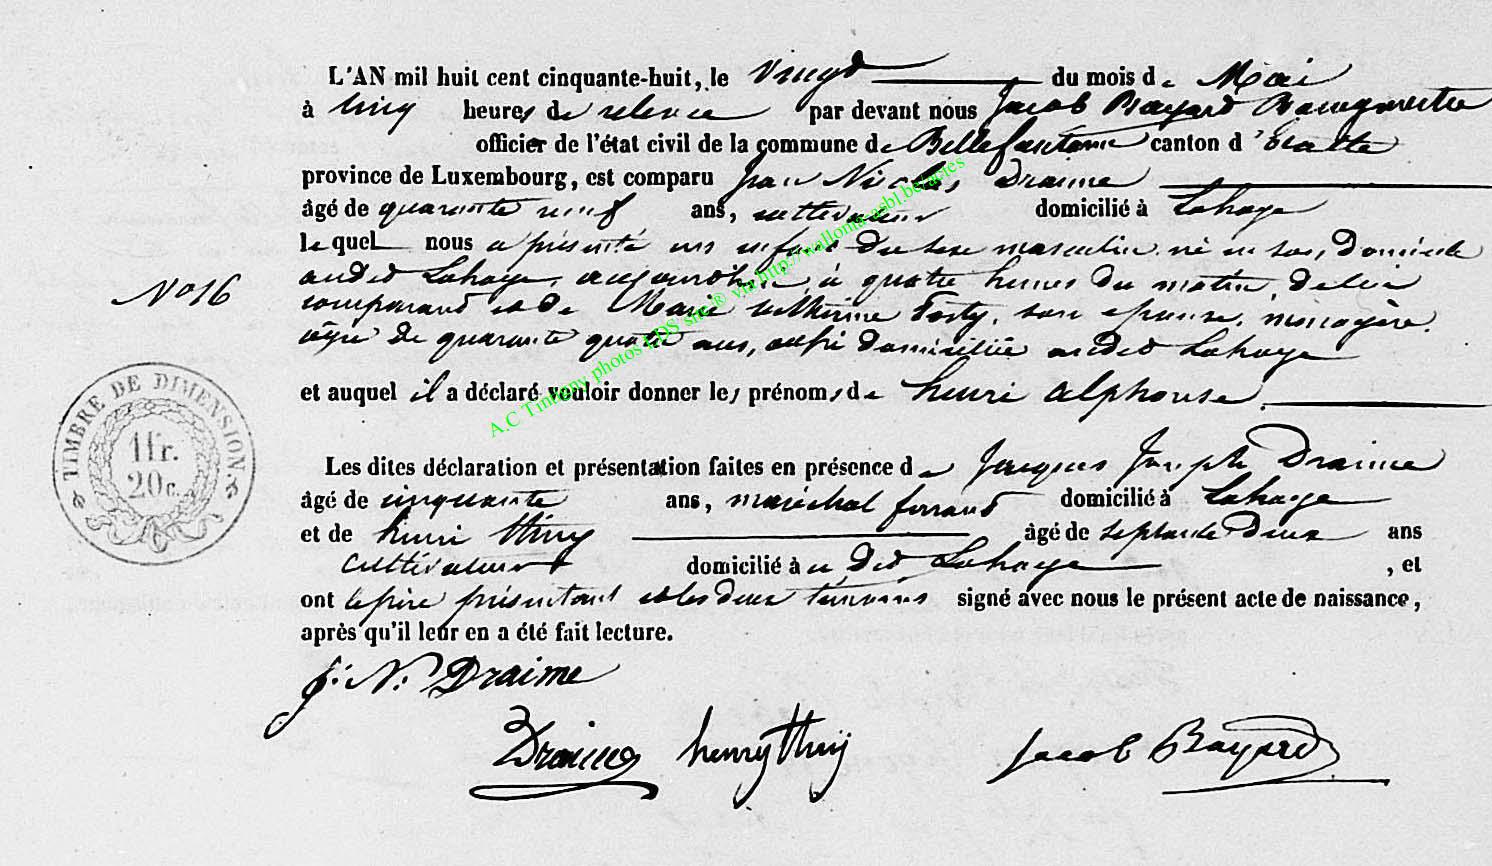 L'AN mil huit cent cinquante-huit, le vingt du mois de Mai
à cinq heures de relevée par devant nous Jacob Bayard Bourgmestre
officier de l'état civil de la commune de Bellefontaine canton d'Etalle
province de Luxembourg, est comparu Jean Nicolas Draime
âgé de quarante neuf ans, cultivateur domicilié à Lahage
lequel nous a présenté un enfant du sexe masculin né en son domicile
audit Lahage, aujourd'hui à quatre heures du matin, de lui
N° 16
comparant et de Marie catherine, son épouse, ménagère,
âgée de quarante quatre ans, aussi domiciliée audit Lahage
et auquel il a déclaré vouloir donner les prénoms de henri alphonse.
TIMBRE DE DIMENSION
1 fr.
20 c.
Les dites déclaration et présentation faites en présence de Jacques Joseph Draime
âgé de cinquante ans, maréchal ferrand domicilié à Lahage
et de henri thiry âgé de septante deux ans
cultivateur domicilié à u dit Lahage, et
ont le père présentant et les deux témoins signé avec nous le présent acte de naissance,
après qu'il leur en a été fait lecture.
J. N: Draime
Draime henry thiry Jacob Bayard
A.C Tintigny photos LDS site® via http://wallonia-asbl.be/actes